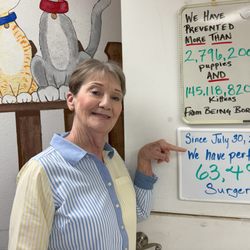 We Have
Prevented
MORE THAN
2,796,20
puppies
AND
145,118,820
Kittens
From Being Bor
Since July 30,
We have perf
63,4
Surger